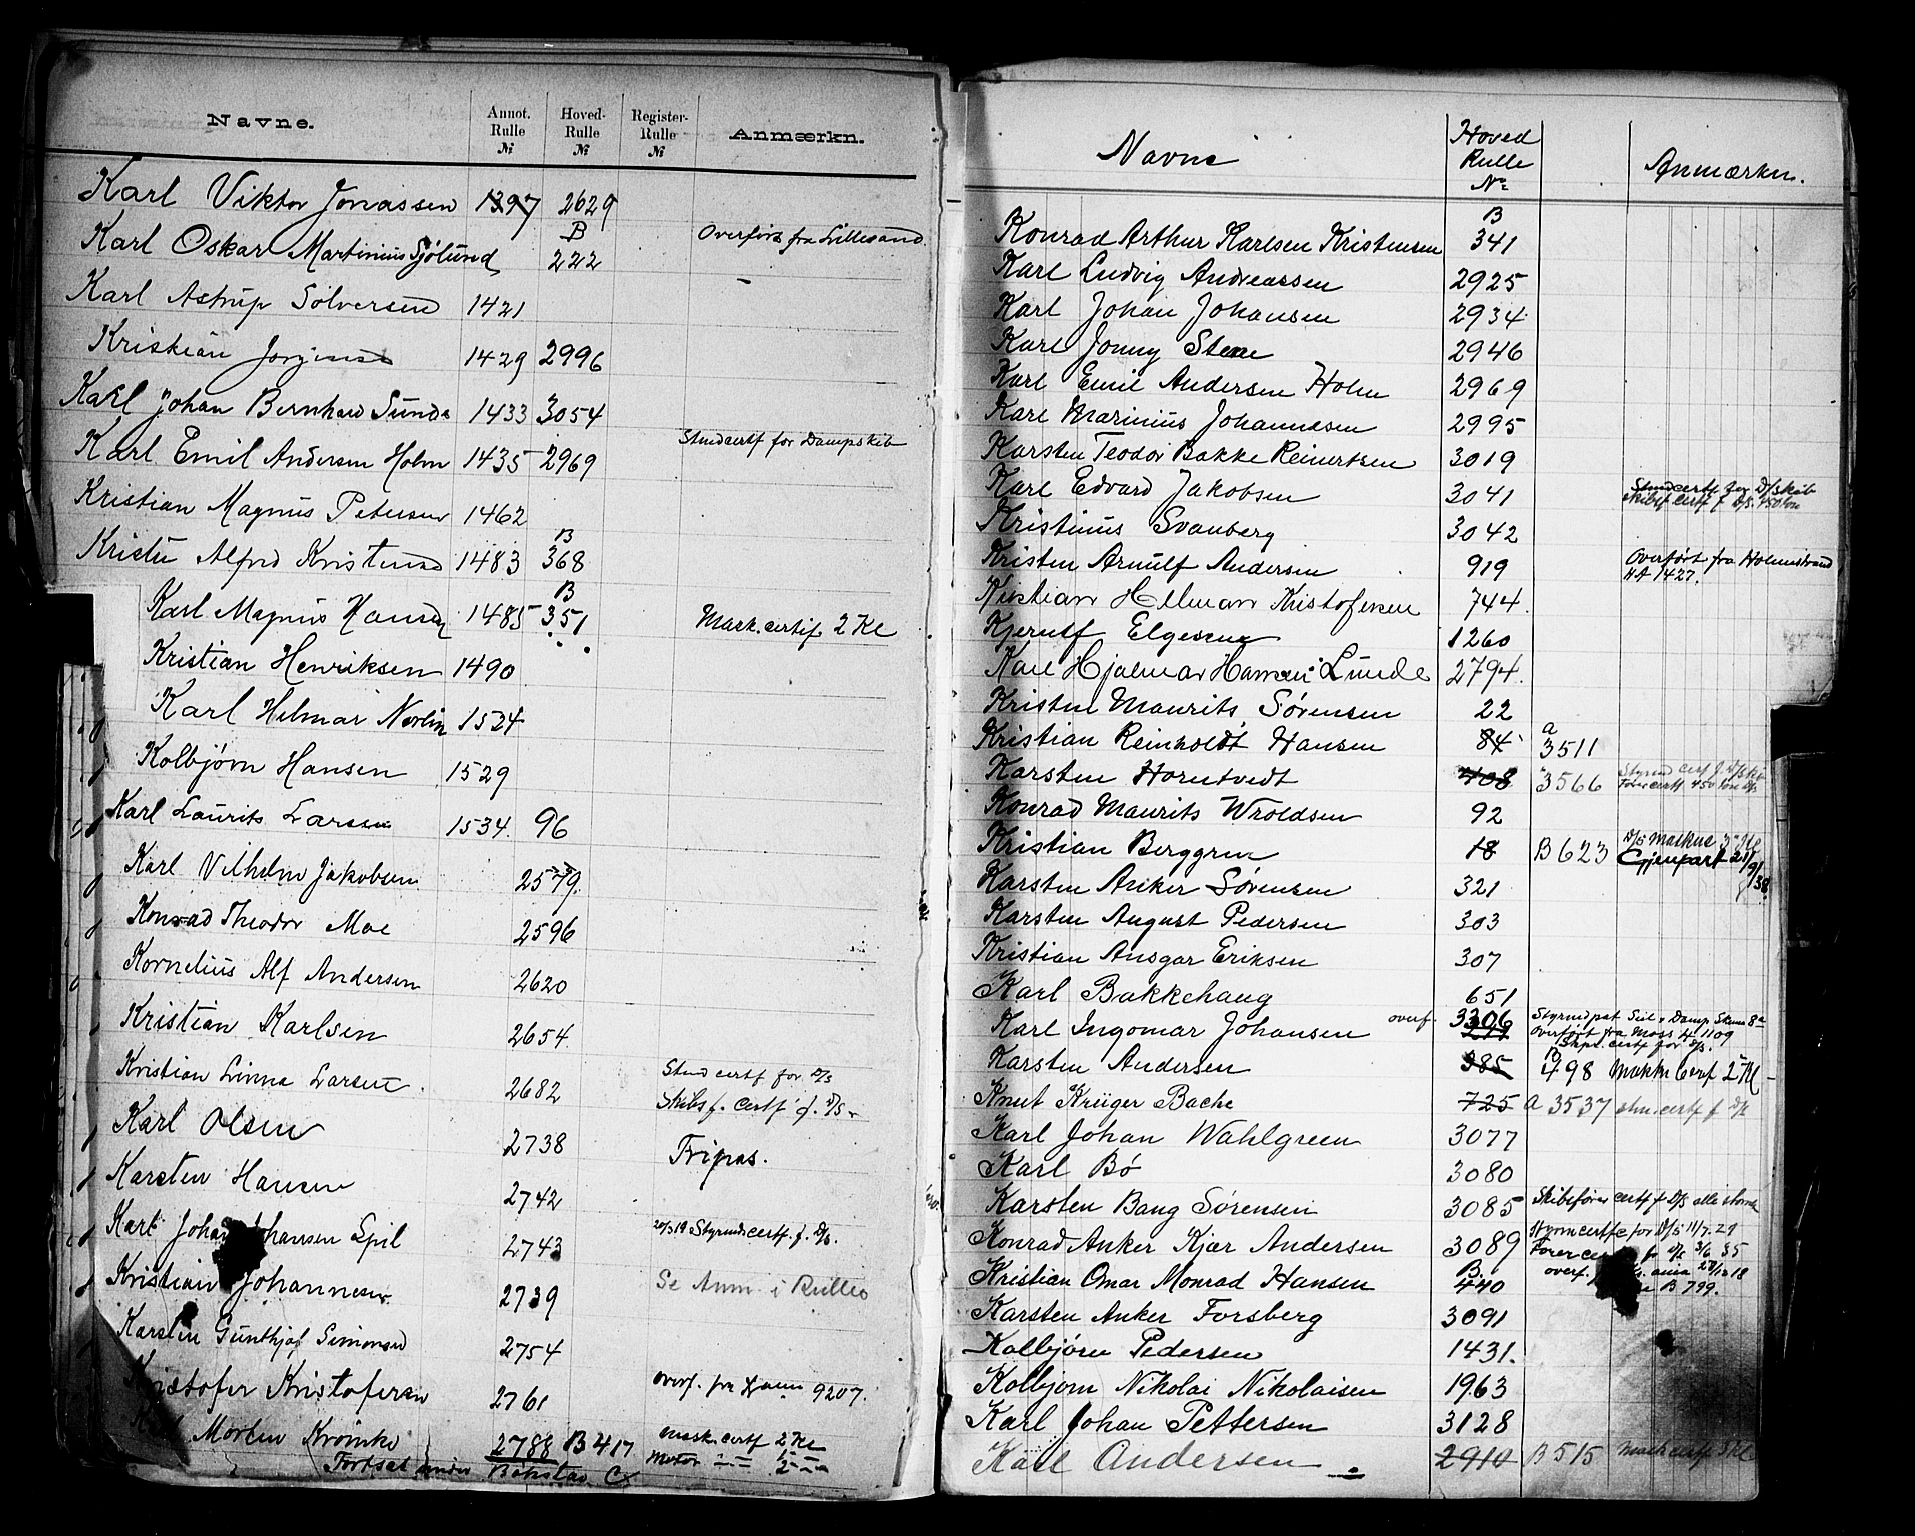 Navne.
Annot. Rulle №
Hoved- Rulle №
Register- Rulle №
Anmærkn.
Karl Viktor Jonassen 1397 2629
Karl Oskar Martinius Sjølund B 222 Overført fra Lillesand.
Karl Astrup Sølversen 1421
Kristian Jørgensen 1429 2996
Karl Johan Bernhard Sunde 1433 3054
Karl Emil Andersen Holm 1435 2969 Stmdcertf for Dampskib
Kristian Magnus Petersen 1462
Kristen Alfred Kristensen 1483 B 368
Karl Magnus Hansen 1485 B 351 Mask. certif. 2 Kl
Kristian Henriksen 1490
Karl Hilmar Norlin 1524
Kolbjørn Hansen 1529
Karl Laurits Larsen 1534. 96
Karl Vilhelm Jakobsen 2579.
Konrad Theodor Moe 2596
Kornelius Alf Andersen 2620
Kristian Karlsen 2654
Kristian Linna Larsen 2682 Stmd certf for D/S
Skibsf. certf. f. D/S
Karl Olsen 2738 Fripas.
Karsten Hansen 2742
Karl Johan Johansen Spil 2743 20/3 19 Styrmdscertf. f. D/S.
Kristian Johannesen 2739 Se Anm i Rullen
Karsten Gunthjof Simonsen 2754
Kristofer Kristofersen 2761 overf. fra 9207.
Morten Krömke 2788 B 417 mask. certf 2 Kl
Motor — " — 2 — " —
Fortsat under Bokstav C
Navne
Hoved Rulle No
Anmærkn.
Konrad Arthur Karlsen Kristensen B 341
Karl Ludvig Andreassen 2925
Karl Johan Johansen 2934
Karl Jonny Stene 2946
Karl Emil Andersen Holm 2969
Karl Marinius Johannesen 2995
Karsten Teodor Bakke Reinertsen 3019
Karl Edvard Jakobsen 3041 Stmdcertf for D/skib
Skibsf certf f D/S. 450 ton
Kristinus Svanberg 3042
Kristen Arnulf Andersen 919 Overført fra Holmestrand
HA 1427.
Kristian Helman Kristofersen 744.
Kjerulf Elgesen 1260
Karl Hjalmar Hansen Lunde 2794.
Kristen Maurits Sørensen 22
Kristian Reinholdt Hansen 84 a 3511
Karsten Horntvedt 408 3566 Styrmd certf f. D/skib
Fører certf 450 tons D/S
Konrad Maurits Wroldsen 92
Kristian Berggren 18 B 623 D/S Maskne 3 Kl
Gjenpart 21/9/38.
Karsten Anker Sørensen 321
Karsten August Pedersen 303
Kristian Ansgar Eriksen 307
Karl Bakkehaug 651
Karl Ingomar Johansen overf. 3306 Styrmdpat Seil & Damp
overført fra Moss H 1109
Skps. certf for D/S.
Karsten Andersen 385 B 498 Maskn Certf 2 Kl
Knut Krüger Bache 725 a 3537 stm. certf f D/S
Karl Johan Wahlgreen 3077
Karl Bø 3080
Karsten Bang Sørensen 3085 Skibsfører certf f D/S alle størr.
Konrad Anker Kjær Andersen 3089 Styrm certf for D/S 11/7. 29
Fører certf for D/S 3/6 35
Kristian Omar Monrad Hansen B. 440 overf. 28/12 18
B 799.
Karsten Anker Forsberg 3091
Kolbjørn Pedersen 1431.
Kolbjørn Nikolai Nikolaisen 1963
Karl Johan Pettersen 3128
Karl Andersen 2910 B 515 Mask certf 3 Kl